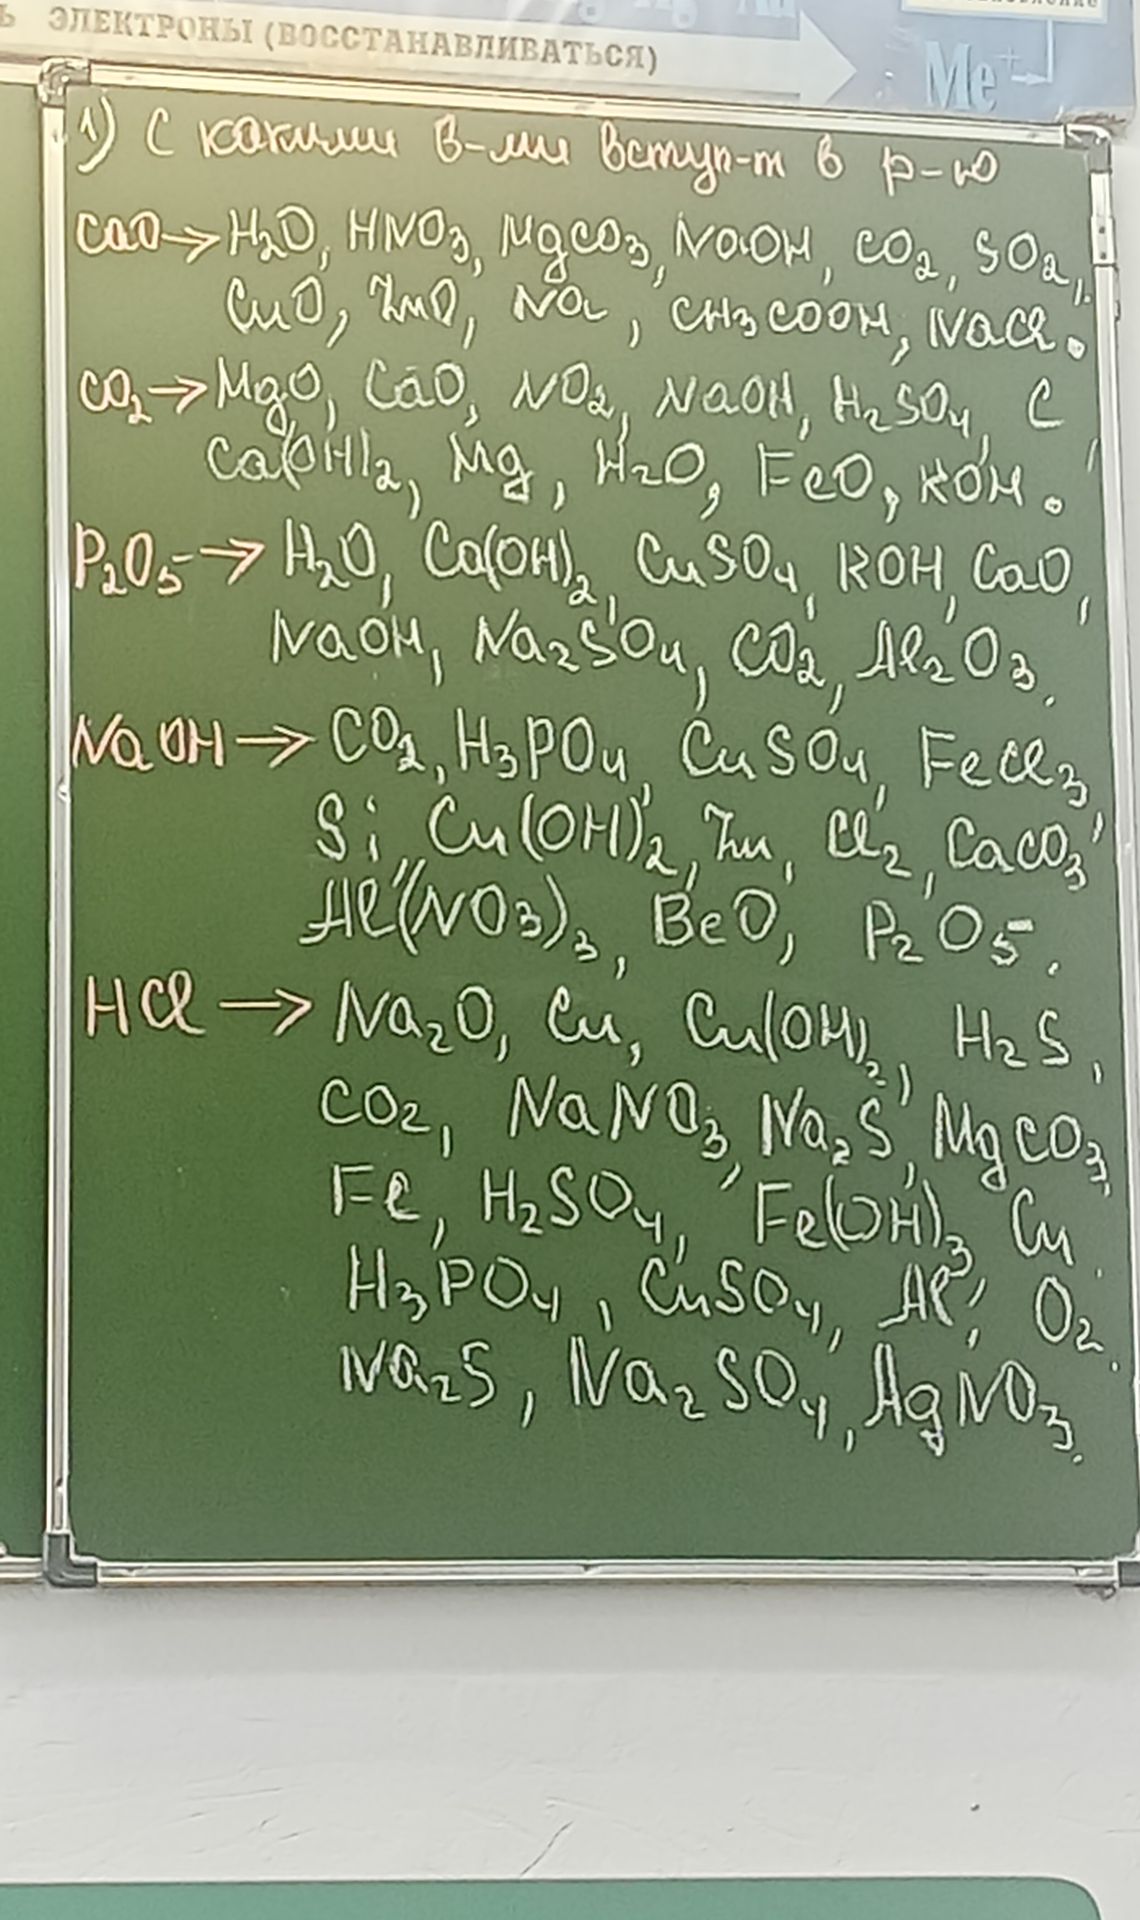 ЭЛЕКТРОНЫ (ВОССТАНАВЛИВАТЬСЯ)
Me⁺
1) С какими в-ми вступ-т в р-ю
CaO → H₂O, HNO₃, MgCO₃, NaOH, CO₂, SO₂,
CuO, ZnO, Na, CH₃COOH, NaCl.
CO₂ → MgO, CaO, NO₂, NaOH, H₂SO₄, C,
Ca(OH)₂, Mg, H₂O, FeO, KOH.
P₂O₅ → H₂O, Ca(OH)₂, CuSO₄, KOH, CaO,
NaOH, Na₂SO₄, CO₂, Al₂O₃.
NaOH → CO₂, H₃PO₄, CuSO₄, FeCl₃,
Si, Cu(OH)₂, Zn, Cl₂, CaCO₃,
Al(NO₃)₃, BeO, P₂O₅.
HCl → Na₂O, Cu, Cu(OH)₂, H₂S,
CO₂, NaNO₃, Na₂S, MgCO₃,
Fe, H₂SO₄, Fe(OH)₃, Cu.
H₃PO₄, CuSO₄, Al, O₂.
Na₂S, Na₂SO₄, AgNO₃.